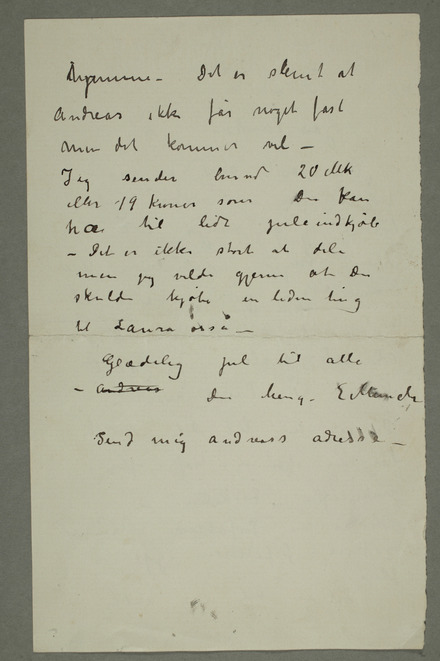 hjemme – Det er slemt at
Andreas ikke får noget fast
men det kommer vel –
Jeg sender hermed 20 Mk
eller 19 kroner som Du kan
ha til lidt juleindkjøb
– Det er ikke stort at dele
men jeg vilde gjerne at Du
skulde kjøbe en liden ting
til Laura også –
Glædelig jul til alle
– Andreas Din heng. E Munch
Send mig Andreas's adresse –